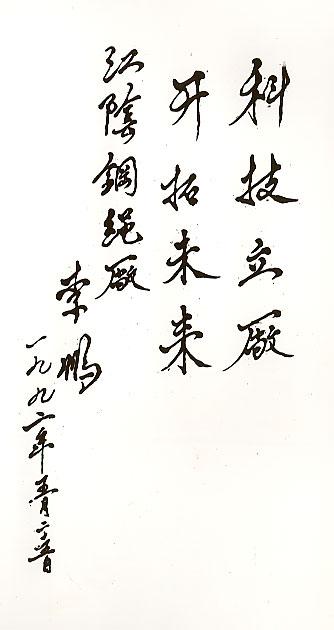 科技立厰
开拓未来
江陰鋼绳厰
李鹏
一九九二年五月二十五日